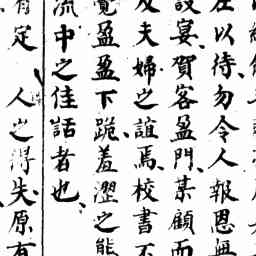 左以待勿令人報恩無
設宴賀客盈門某顧而
及夫婦之誼焉校書不
覺盈盈下跪羞澀之態
流中之佳話者也
有定 人之得失原有